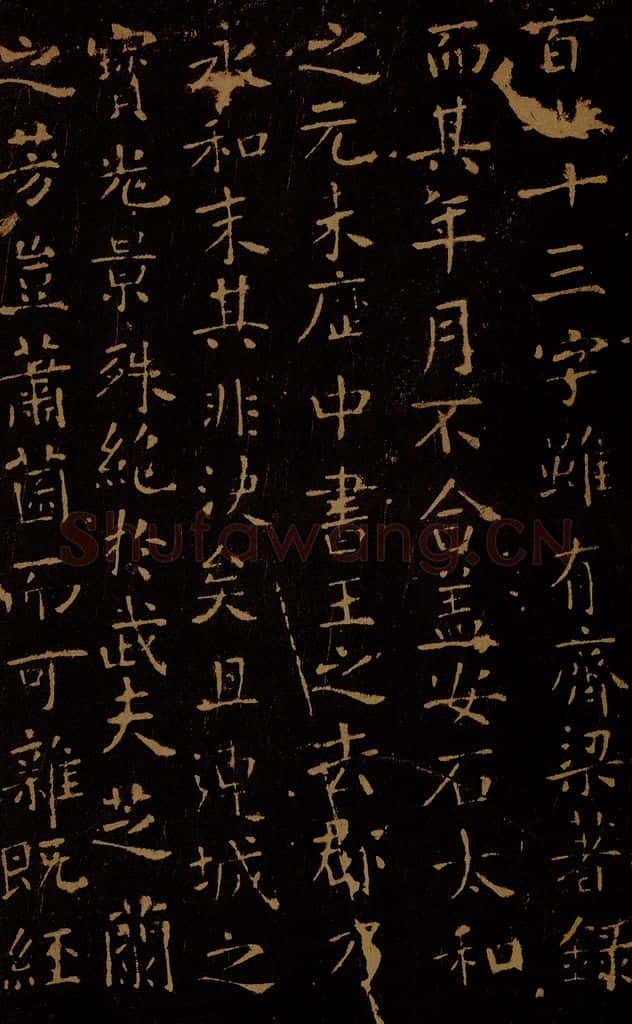 百七十三字雖有齊梁著錄
而其年月不合蓋安石太和
之元未歷中書王之去郡乃
永和末其非決矣且連城之
寶光景殊絕於武夫芝蘭
之芳豈蕭茵而可雜既經
Shutawang.CN